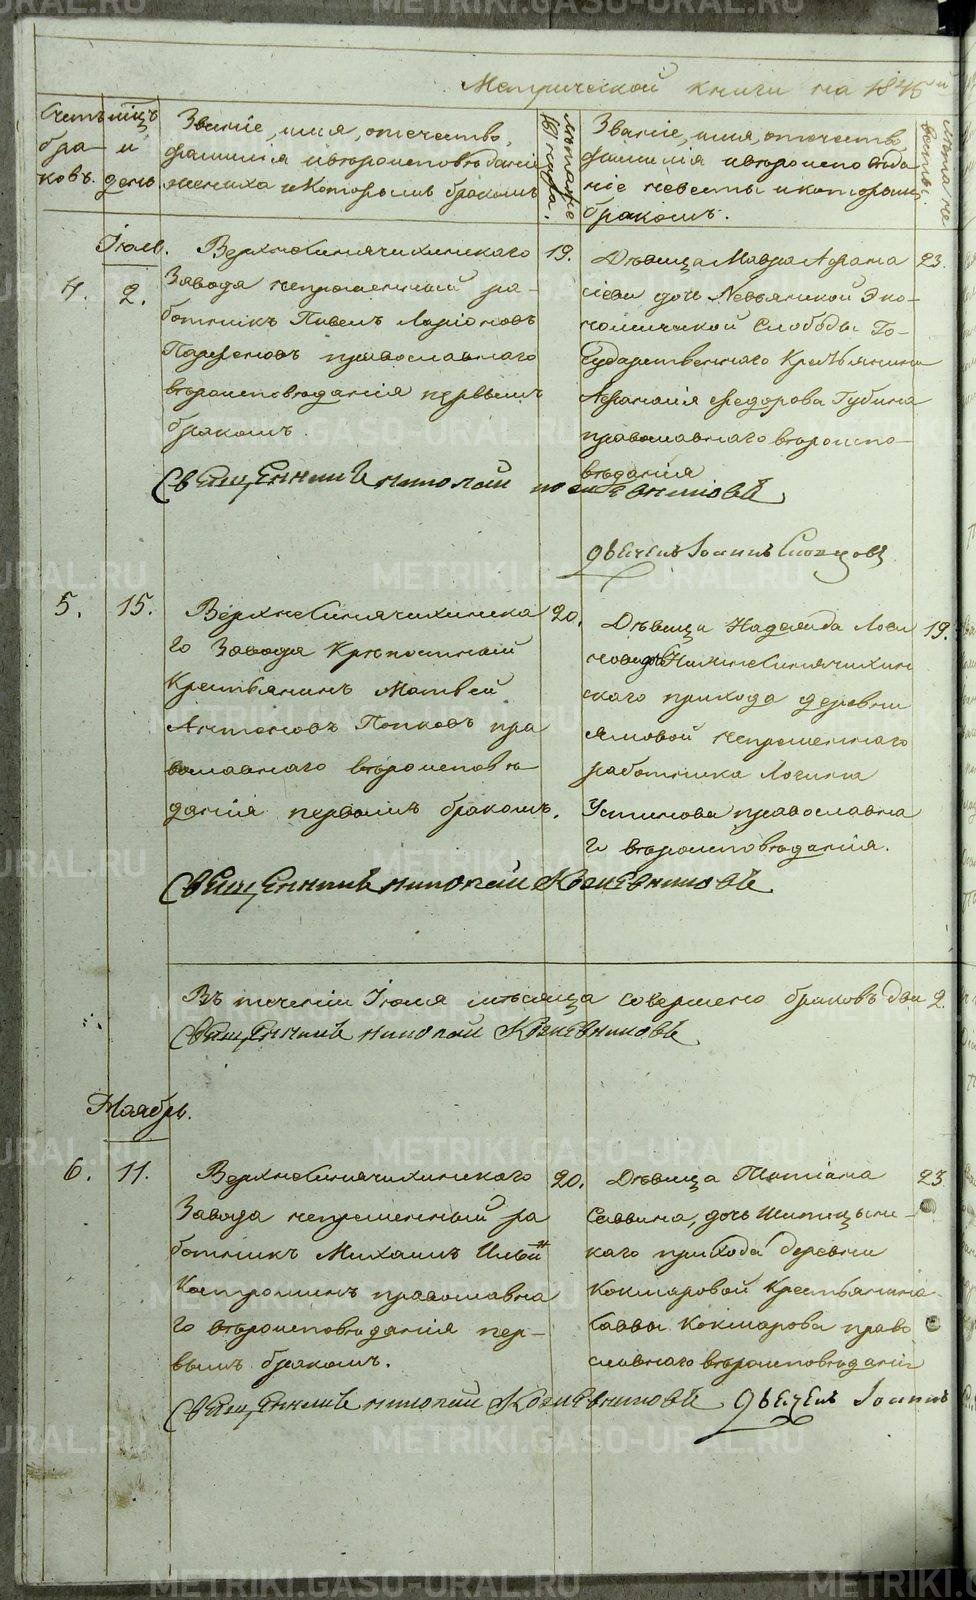 METRIKI.GASO-URAL.RU
Метрической книги на 1845й
Счетъ бра-ковъ.
мцъ и день
Званіе, имя, отечество,
фамилія и вѣроисповѣданіе
жениха и которымъ бракомъ
лѣта жениха.
Званіе, имя, отечество
фамилія и вѣроисповѣда
ніе невесты и которымъ
бракомъ.
Іюль.
4. 2.
Верхнесинячихинскаго
Завода непременный ра-
ботникъ Павелъ Ларіоновъ
Парфеновъ православнаго
вѣроисповѣданія первымъ
бракомъ.
19.
Дѣвица Мавра Афана
сіева дочь Невьянской Эко-
номической Слободы Го-
сударственнаго Крестьянина
Афанасія Федорова Губина
православнаго вѣроиспо-
вѣданія
23.
Священникъ Николай Кожевниковъ
Дьячекъ Іоаннъ Словцовъ
5. 15.
Верхнесинячихинска
го Завода Крѣпостный
Крестьянинъ Матвей
Антоновъ Попковъ пра
вославнаго вѣроисповѣ
данія первымъ бракомъ.
20.
Дѣвица Надежда Логи
нова дочь Нижнесинячихин
скаго прихода деревни
Ямовой непременнаго
работника Логина
Устинова православна
го вѣроисповѣданія.
19.
Священникъ Николай Кожевниковъ
Въ теченіи Іюля мѣсяца совершено браковъ два 2.
Священникъ Николай Кожевниковъ
Ноябрь.
6. 11.
Верхнесинячихинскаго
Завода непременный ра
ботникъ Михаилъ Ильин
Костроминъ православна
го вѣроисповѣданія пер-
вымъ бракомъ.
20.
Дѣвица Татіана
Саввина, дочь Шипицын-
скаго прихода деревни
Кокшаровой Крестьянина
Саввы Кокшарова право
славнаго вѣроисповѣданія
23.
Священникъ Николай Кожевниковъ Дьячекъ Іоаннъ